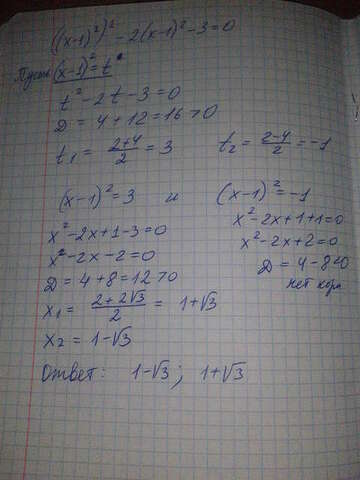 ((x-1)²)² - 2(x-1)² - 3 = 0
Пусть (x-1)² = t
t² - 2t - 3 = 0
D = 4 + 12 = 16 > 0
t₁ = (2+4)/2 = 3 t₂ = (2-4)/2 = -1
(x-1)² = 3 и (x-1)² = -1
x² - 2x + 1 - 3 = 0 x² - 2x + 1 + 1 = 0
x² - 2x - 2 = 0 x² - 2x + 2 = 0
D = 4 + 8 = 12 > 0 D = 4 - 8 < 0
x₁ = (2+2√3)/2 = 1+√3 нет кор
x₂ = 1-√3
Ответ: 1-√3; 1+√3